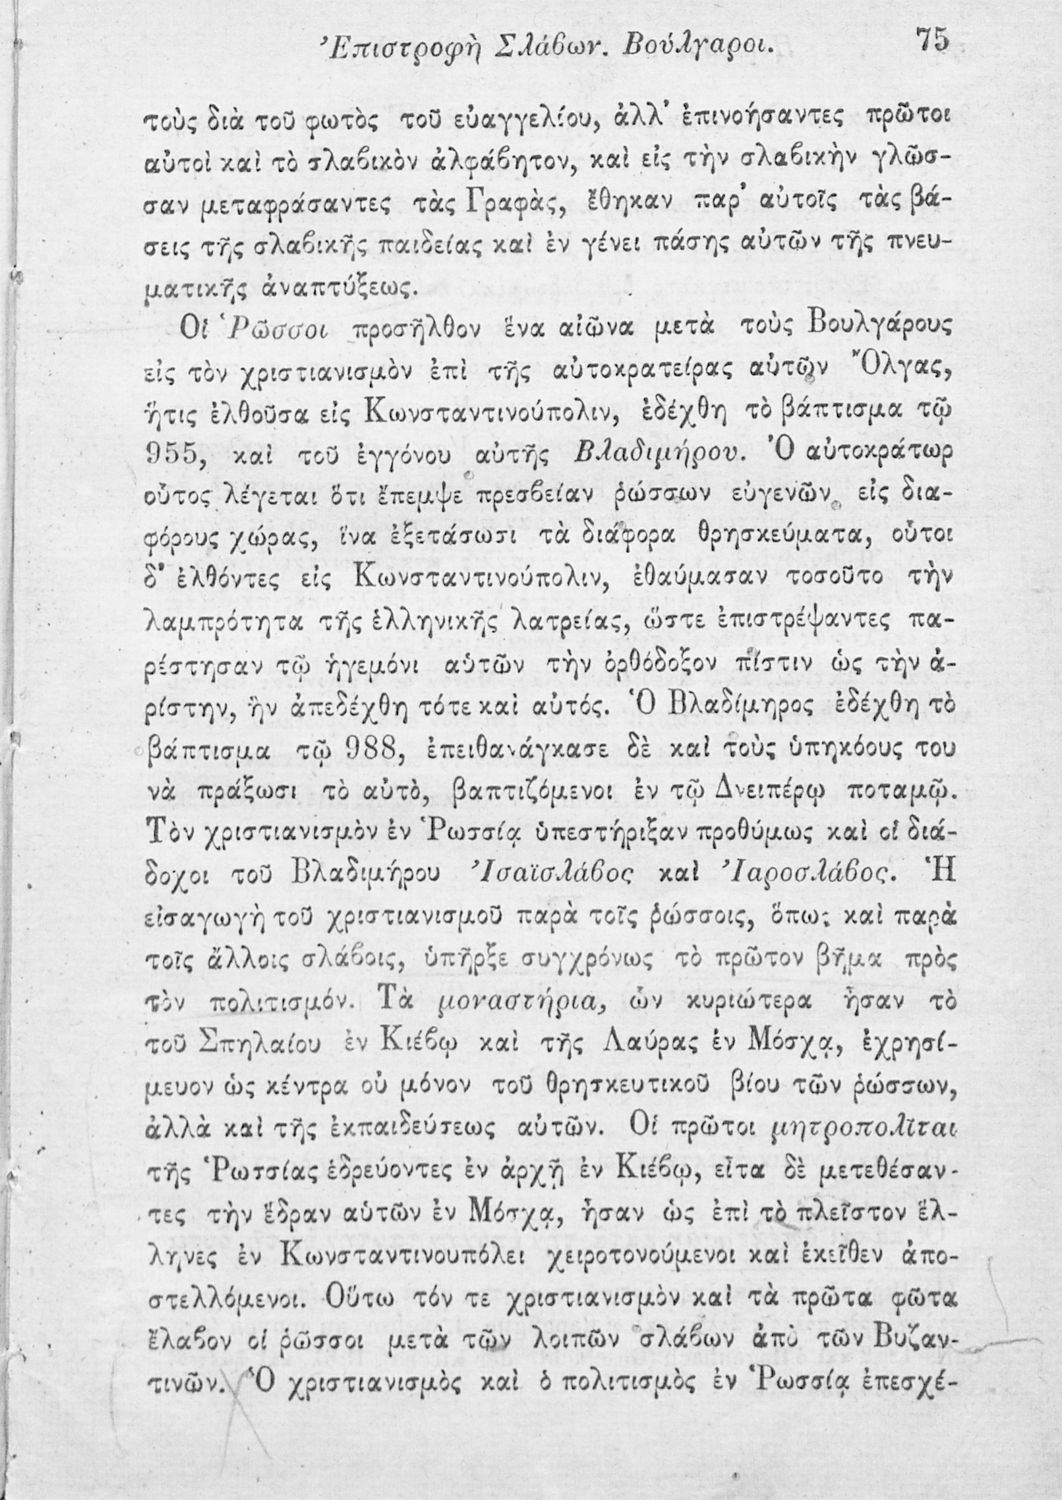 Ἐπιστροφὴ Σλάβων. Βούλγαροι. 75
τοὺς διὰ τοῦ φωτὸς τοῦ εὐαγγελίου, ἀλλ’ ἐπινοήσαντες πρῶτοι
αὐτοὶ καὶ τὸ σλαβικὸν ἀλφάβητον, καὶ εἰς τὴν σλαβικὴν γλῶσ-
σαν μεταφράσαντες τὰς Γραφὰς, ἔθηκαν παρ’ αὐτοῖς τὰς βά-
σεις τῆς σλαβικῆς παιδείας καὶ ἐν γένει πάσης αὐτῶν τῆς πνευ-
ματικῆς ἀναπτύξεως.
Οἱ Ῥῶσσοι προσῆλθον ἕνα αἰῶνα μετὰ τοὺς Βουλγάρους
εἰς τὸν χριστιανισμὸν ἐπὶ τῆς αὐτοκρατείρας αὐτῶν Ὄλγας,
ἥτις ἐλθοῦσα εἰς Κωνσταντινούπολιν, ἐδέχθη τὸ βάπτισμα τῷ
955, καὶ τοῦ ἐγγόνου αὐτῆς Βλαδιμήρου. Ὁ αὐτοκράτωρ
οὗτος λέγεται ὅτι ἔπεμψε πρεσβείαν ῥώσσων εὐγενῶν εἰς δια-
φόρους χώρας, ἵνα ἐξετάσωσι τὰ διάφορα θρησκεύματα, οὗτοι
δ’ ἐλθόντες εἰς Κωνσταντινούπολιν, ἐθαύμασαν τοσοῦτο τὴν
λαμπρότητα τῆς ἑλληνικῆς λατρείας, ὥστε ἐπιστρέψαντες πα-
ρέστησαν τῷ ἡγεμόνι αὐτῶν τὴν ὀρθόδοξον πίστιν ὡς τὴν ἀ-
ρίστην, ἣν ἀπεδέχθη τότε καὶ αὐτός. Ὁ Βλαδίμηρος ἐδέχθη τὸ
βάπτισμα τῷ 988, ἐπειθανάγκασε δὲ καὶ τοὺς ὑπηκόους του
νὰ πράξωσι τὸ αὐτὸ, βαπτιζόμενοι ἐν τῷ Δνειπέρῳ ποταμῷ.
Τὸν χριστιανισμὸν ἐν Ῥωσσίᾳ ὑπεστήριξαν προθύμως καὶ οἱ διά-
δοχοι τοῦ Βλαδιμήρου Ἰσαϊσλάβος καὶ Ἰαροσλάβος. Ἡ
εἰσαγωγὴ τοῦ χριστιανισμοῦ παρὰ τοῖς ῥώσσοις, ὅπως καὶ παρὰ
τοῖς ἄλλοις σλάβοις, ὑπῆρξε συγχρόνως τὸ πρῶτον βῆμα πρὸς
τὸν πολιτισμόν. Τὰ μοναστήρια, ὧν κυριώτερα ἦσαν τὸ
τοῦ Σπηλαίου ἐν Κιέβῳ καὶ τῆς Λαύρας ἐν Μόσχᾳ, ἐχρησί-
μευον ὡς κέντρα οὐ μόνον τοῦ θρησκευτικοῦ βίου τῶν ῥώσσων,
ἀλλὰ καὶ τῆς ἐκπαιδεύσεως αὐτῶν. Οἱ πρῶτοι μητροπολῖται
τῆς Ῥωσσίας ἑδρεύοντες ἐν ἀρχῇ ἐν Κιέβῳ, εἶτα δὲ μετεθέσαν-
τες τὴν ἕδραν αὐτῶν ἐν Μόσχᾳ, ἦσαν ὡς ἐπὶ τὸ πλεῖστον ἕλ-
ληνες ἐν Κωνσταντινουπόλει χειροτονούμενοι καὶ ἐκεῖθεν ἀπο-
στελλόμενοι. Οὕτω τόν τε χριστιανισμὸν καὶ τὰ πρῶτα φῶτα
ἔλαβον οἱ ῥῶσσοι μετὰ τῶν λοιπῶν σλάβων ἀπὸ τῶν Βυζαν-
τινῶν. Ὁ χριστιανισμὸς καὶ ὁ πολιτισμὸς ἐν Ῥωσσίᾳ ἐπεσχέ-